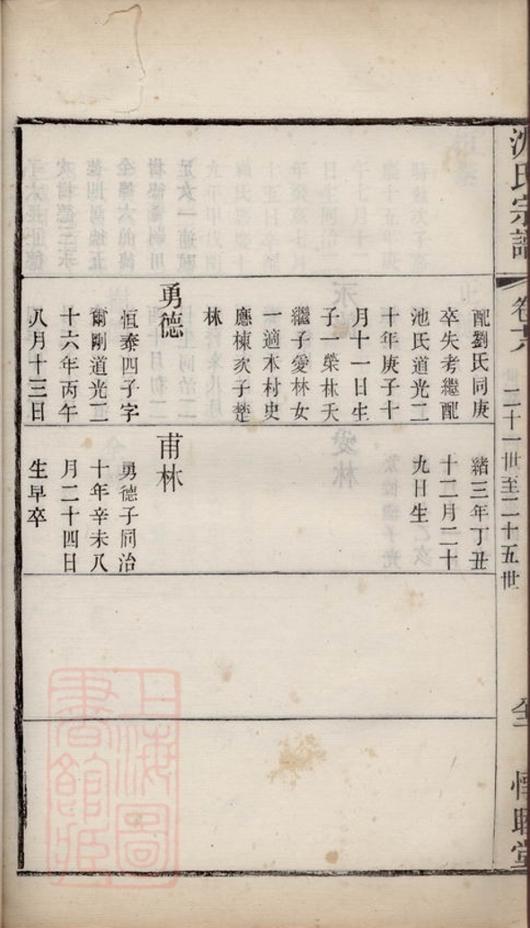 氏宗譜
卷十八
二十一世至二十五世
配劉氏同庚
卒失考繼配
池氏道光二
十年庚子十
月十一日生
子一榮林天
繼子愛林女
一適本村史
應棟次子楚
林
勇德
恆泰四子字
爾剛道光二
十六年丙午
八月十三日
緒三年丁丑
十二月二十
九日生
甫林
勇德子同治
十年辛未八
月二十四日
生早卒
上海圖
書館藏